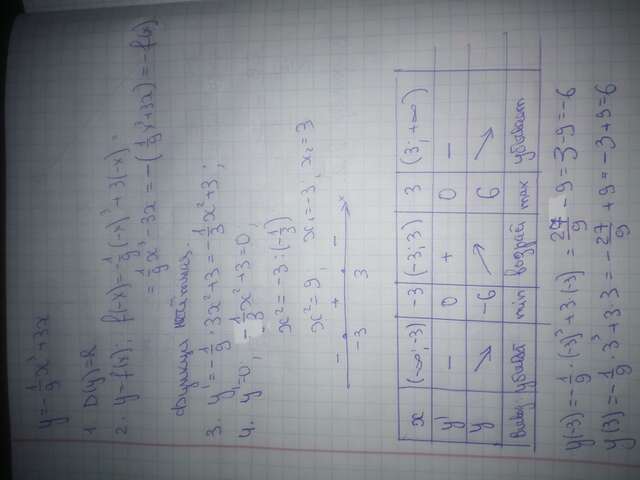 y=-1/9x³+3x
1 D(y)=R
2. y=f(x); f(-x)=-1/9(-x)³+3(-x)=
=1/9x³-3x=-(-1/9x³+3x)=-f(x)
Функция нечётная.
3. y'=-1/9·3x²+3=-1/3x²+3;
4. y'=0; -1/3x²+3=0;
x²=-3:(-1/3)
x²=9; x₁=-3; x₂=3
- + - x
-3 3
x (-∞;-3) -3 (-3;3) 3 (3;+∞)
y' - 0 + 0 -
y ↘ -6 ↗ 6 ↘
Вывод убывает min возраст max убывает
y(-3)=-1/9·(-3)³+3·(-3)=27/9-9=3-9=-6
y(3)=-1/9·3³+3·3=-27/9+9=-3+9=6